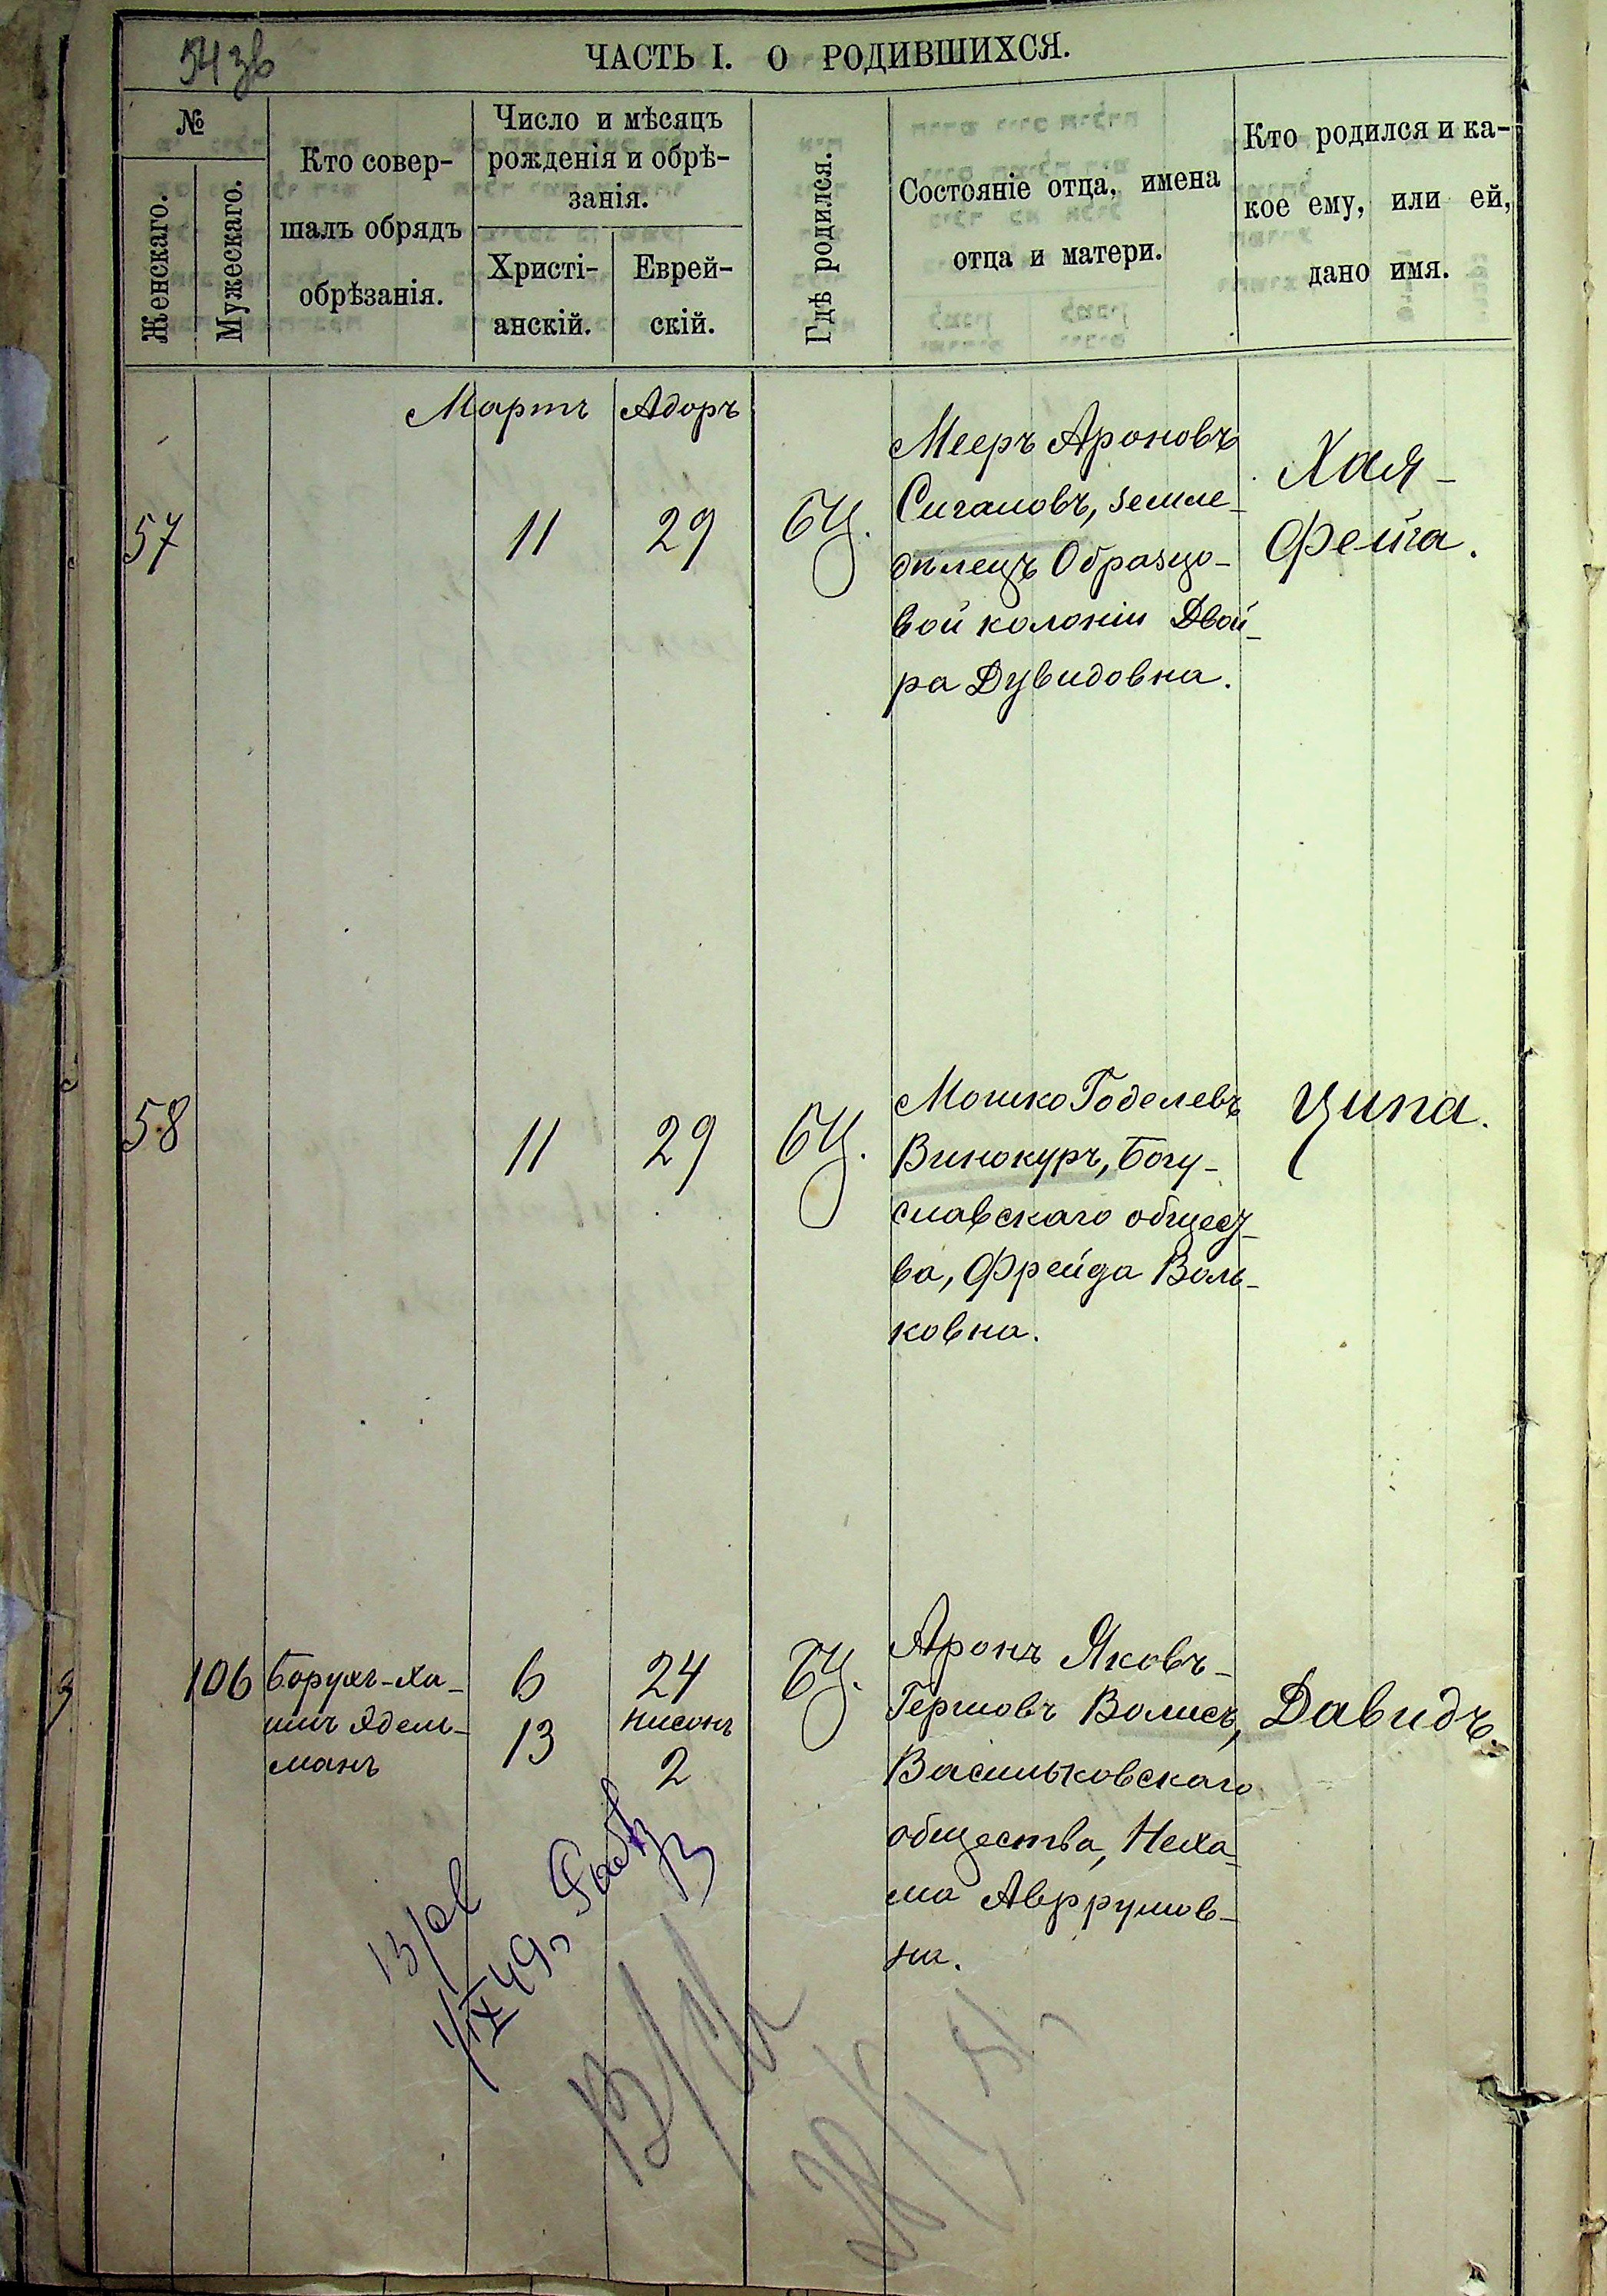 54 зв
ЧАСТЬ I. О РОДИВШИХСЯ.
№
Женскаго.
Мужескаго.
Кто совер-
шалъ обрядъ
обрѣзанія.
Число и мѣсяцъ
рожденія и обрѣ-
занія.
Христі-
анскій.
Еврей-
скій.
Гдѣ родился.
Состояніе отца, имена
отца и матери.
Кто родился и ка-
кое ему, или ей,
дано имя.
Мартъ Адоръ
57
11
29
БЦ.
Мееръ Ароновъ
Сигаловъ, земле-
дѣлецъ Образцо-
вой колоніи Двой-
ра Дувидовна.
Хая-
Фейга.
58
11
29
БЦ.
Мошко Годелевъ
Винокуръ, Богу-
славскаго общест-
ва, Фрейда Воль-
ковна.
Ципа.
106
Борухъ-Ха-
имъ Эдель-
манъ
6
13
24
Нисонъ
2
БЦ.
Аронъ Яковъ-
Гершовъ Волисъ,
Васильковскаго
общества, Неха-
ма Аврумов-
на.
Давидъ.
1/IX 49г